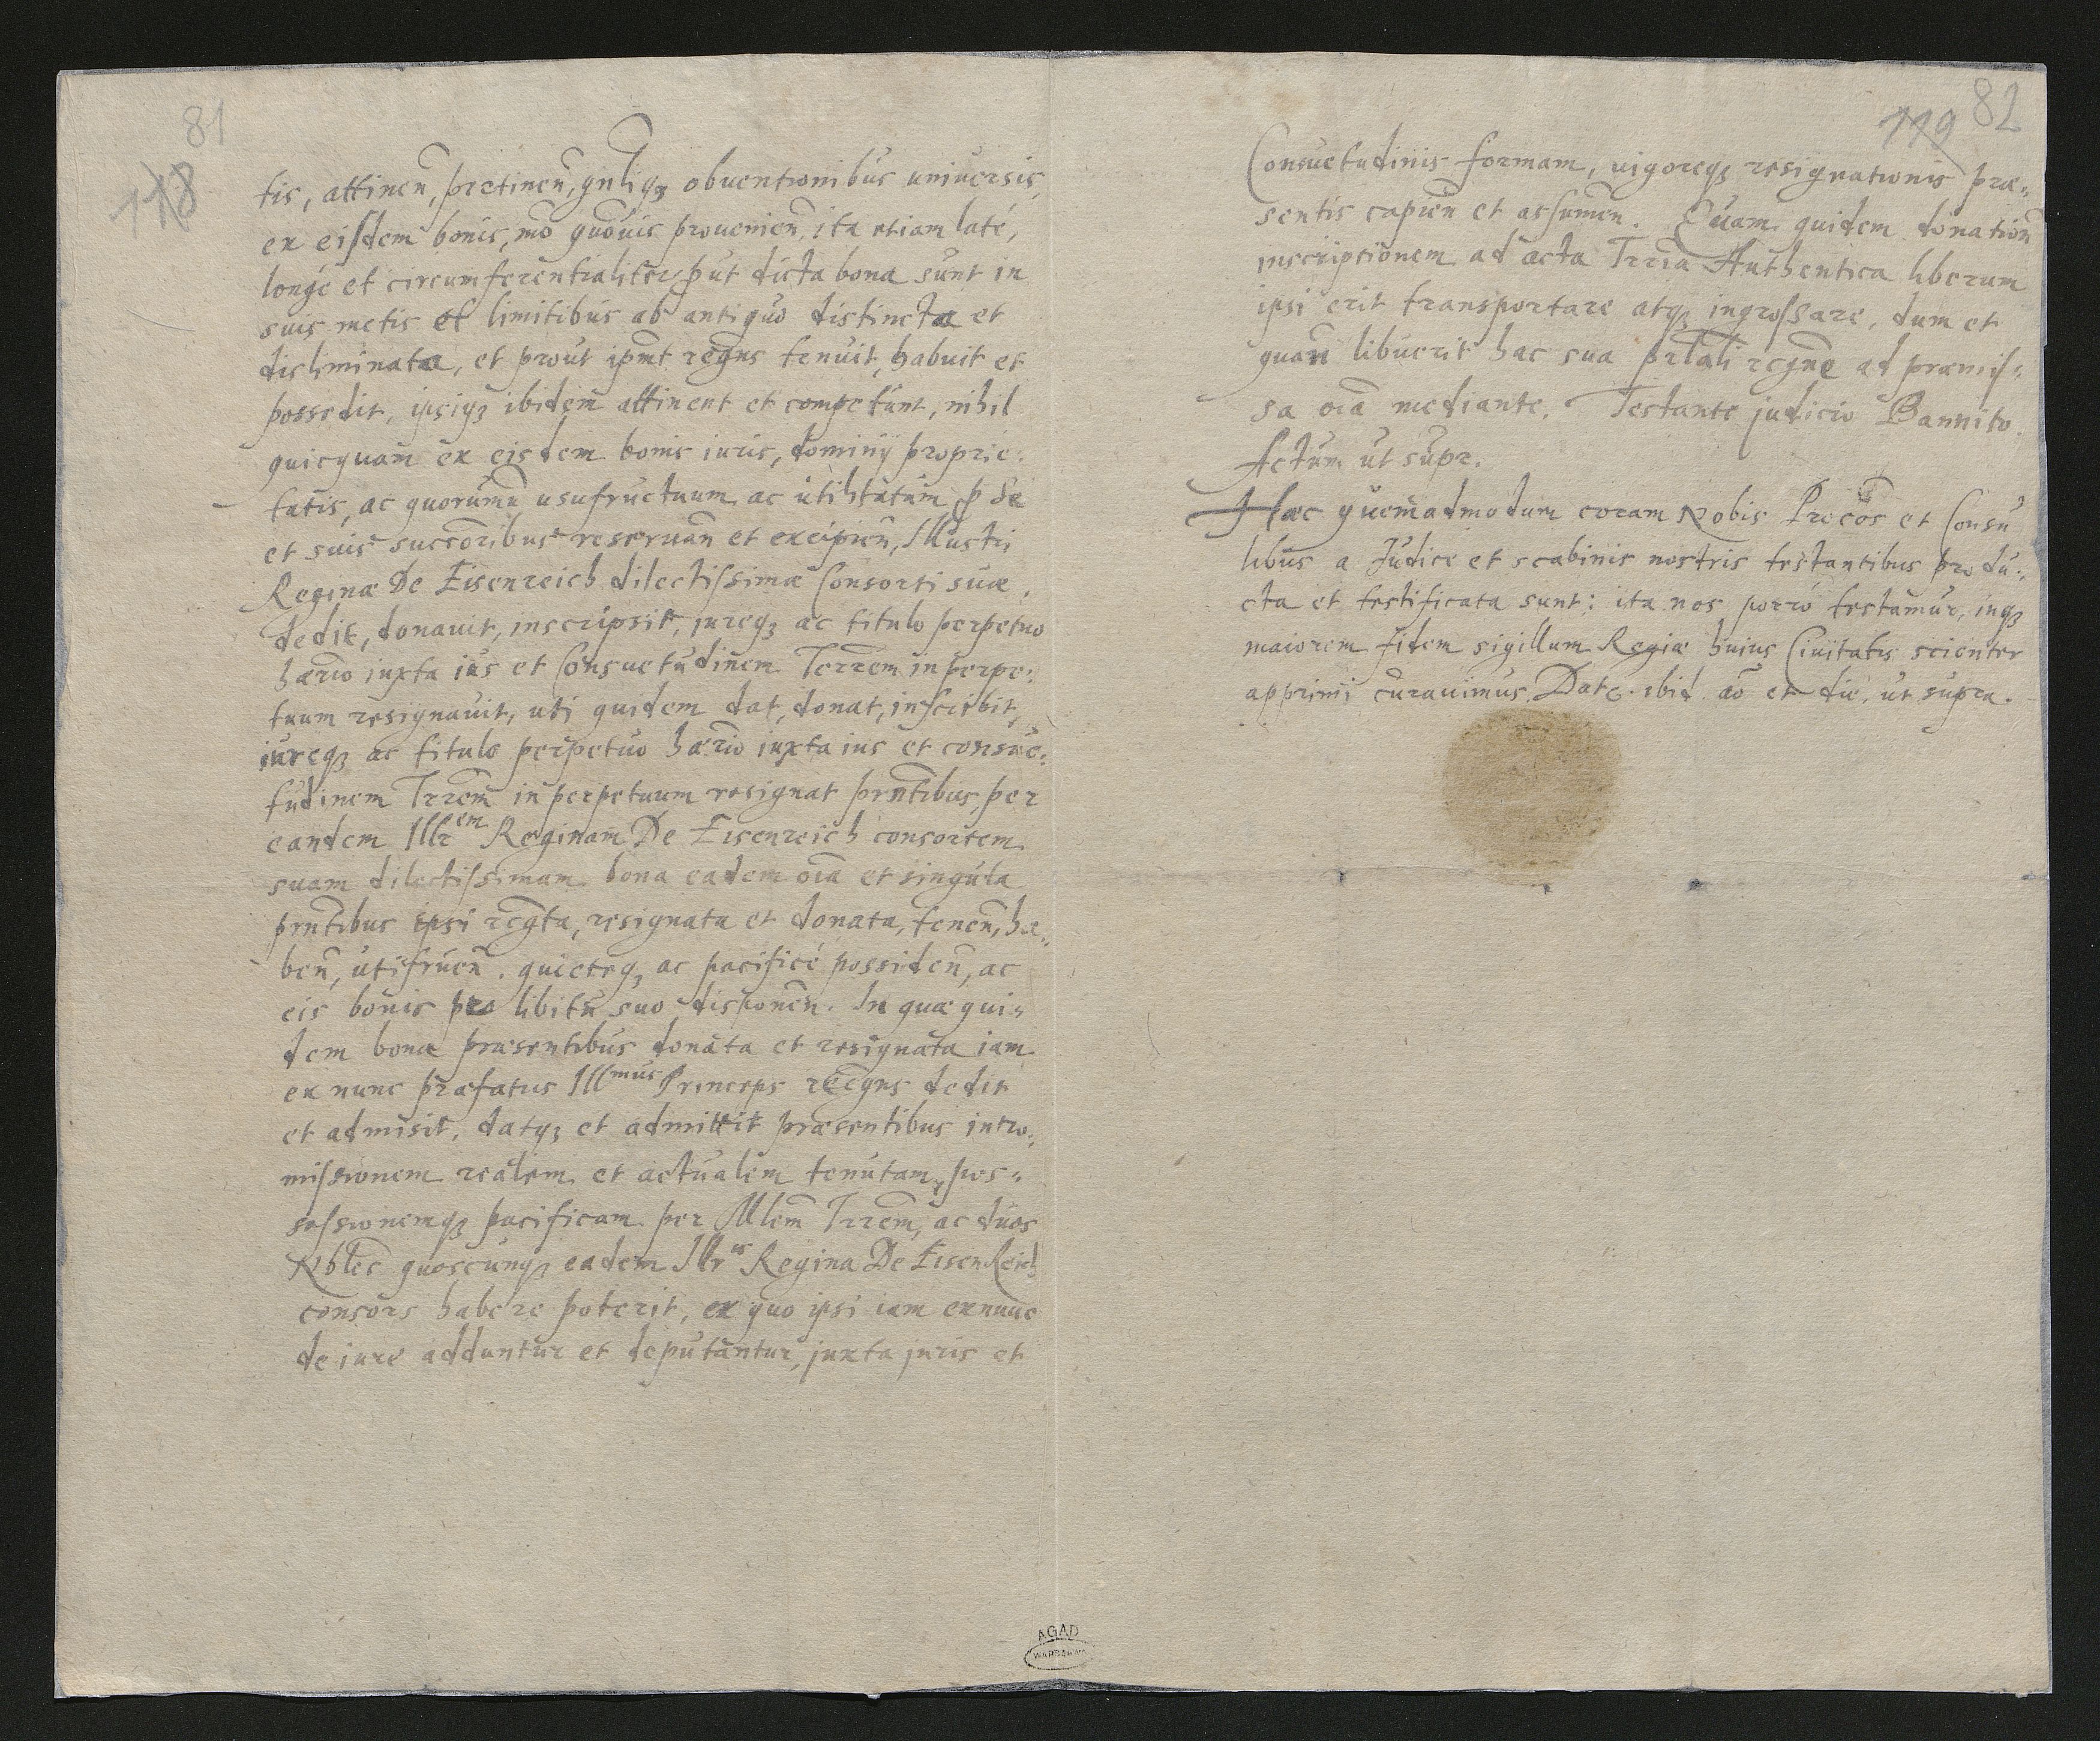 81
118
tis, attinen̄, p̱tinen̄, gn̄liqꝫ obuentionibus uniuersis,
ex eisdem bonis, mō quōuis prouenien̄, ita etiam laté,
longé et circumferentialiter, put dicta bona sunt in
suis metis et limitibus ab antiquo distincta et
disliminata, et prout ipm̄t recḡns tenuit, habuit et
possedit, ipsiqꝫ ibidem attinent et competunt, nihil
quicquam ex eisdem bonis iuris, dominij proprie:
tatis, ac quorumūis usufructuum ac utilitatum p se
et suis succōribus reseruan̄ et excipien̄, Illustri
Reginæ De Eisenreich dilectissimæ Consorti suæ,
dedit, donauit, inscripsit, iureqꝫ ac titulo perpetuo
hær̄io iuxta ius et Consuetudinem Terrēm in perpe:
tuum resignauit, uti quidem dat, donat, inscribit,
iureqꝫ ac titulo perpetuo hær̄io iuxta ius et consue:
tudinem Trrēm in perpetuum resignat prn̄tibus, per
eandem Illrem Reginam De Eisenreich consortem
suam dilectissimam bona eadem oīa et singula
prn̄tibus ipsi rcḡta, resignata et donata, tenen̄, ha:
ben̄, utifruen̄. quieteqꝫ ac pacificé possiden̄, ac
eis bonis pro libitu suo disponen̄. In quæ qui:
dem bona præsentibus donata et resignata iam
ex nunc præfatus Illmus Princeps recḡns dedit
et admisit, datqꝫ et admittit præsentibus intro:
missionem realem et actualem tenutam, pos:
sessionemqꝫ pacificam per Mlēm Trrēm, ac duos
Nblēs quoscunqꝫ eadem Illris Regina De EisenReich
consors habere poterit, ex quo ipsi iam exnunc
de iure adduntur et deputantur, juxta juris et
82
119
Consuetudinis formam, uigoreqꝫ resignationis præ:
sentis capien̄ et assumen̄. Quam quidem donation̄
inscriptionem ad acta Trria Authentica liberum
ipsi erit transportare atqꝫ ingrossare, dum et
quan̄ libuerit hac sua prl̄ali rcḡne ad præmis:
sa oīa mediante. Testante judicio Bannito.
Actum ut supr.
Hæc quemadmodum coram Nobis Procōs et Consu
libus a Judice et scabinis nostris testantibus produ:
cta et testificata sunt: ita nos porró testamur, inqꝫ
maiorem fidem sigillum Regiæ huius Ciuitatis scienter
apprimi curauimus. Dat. ibid. aō et die, ut supra.
AGAD
WARSZAWA